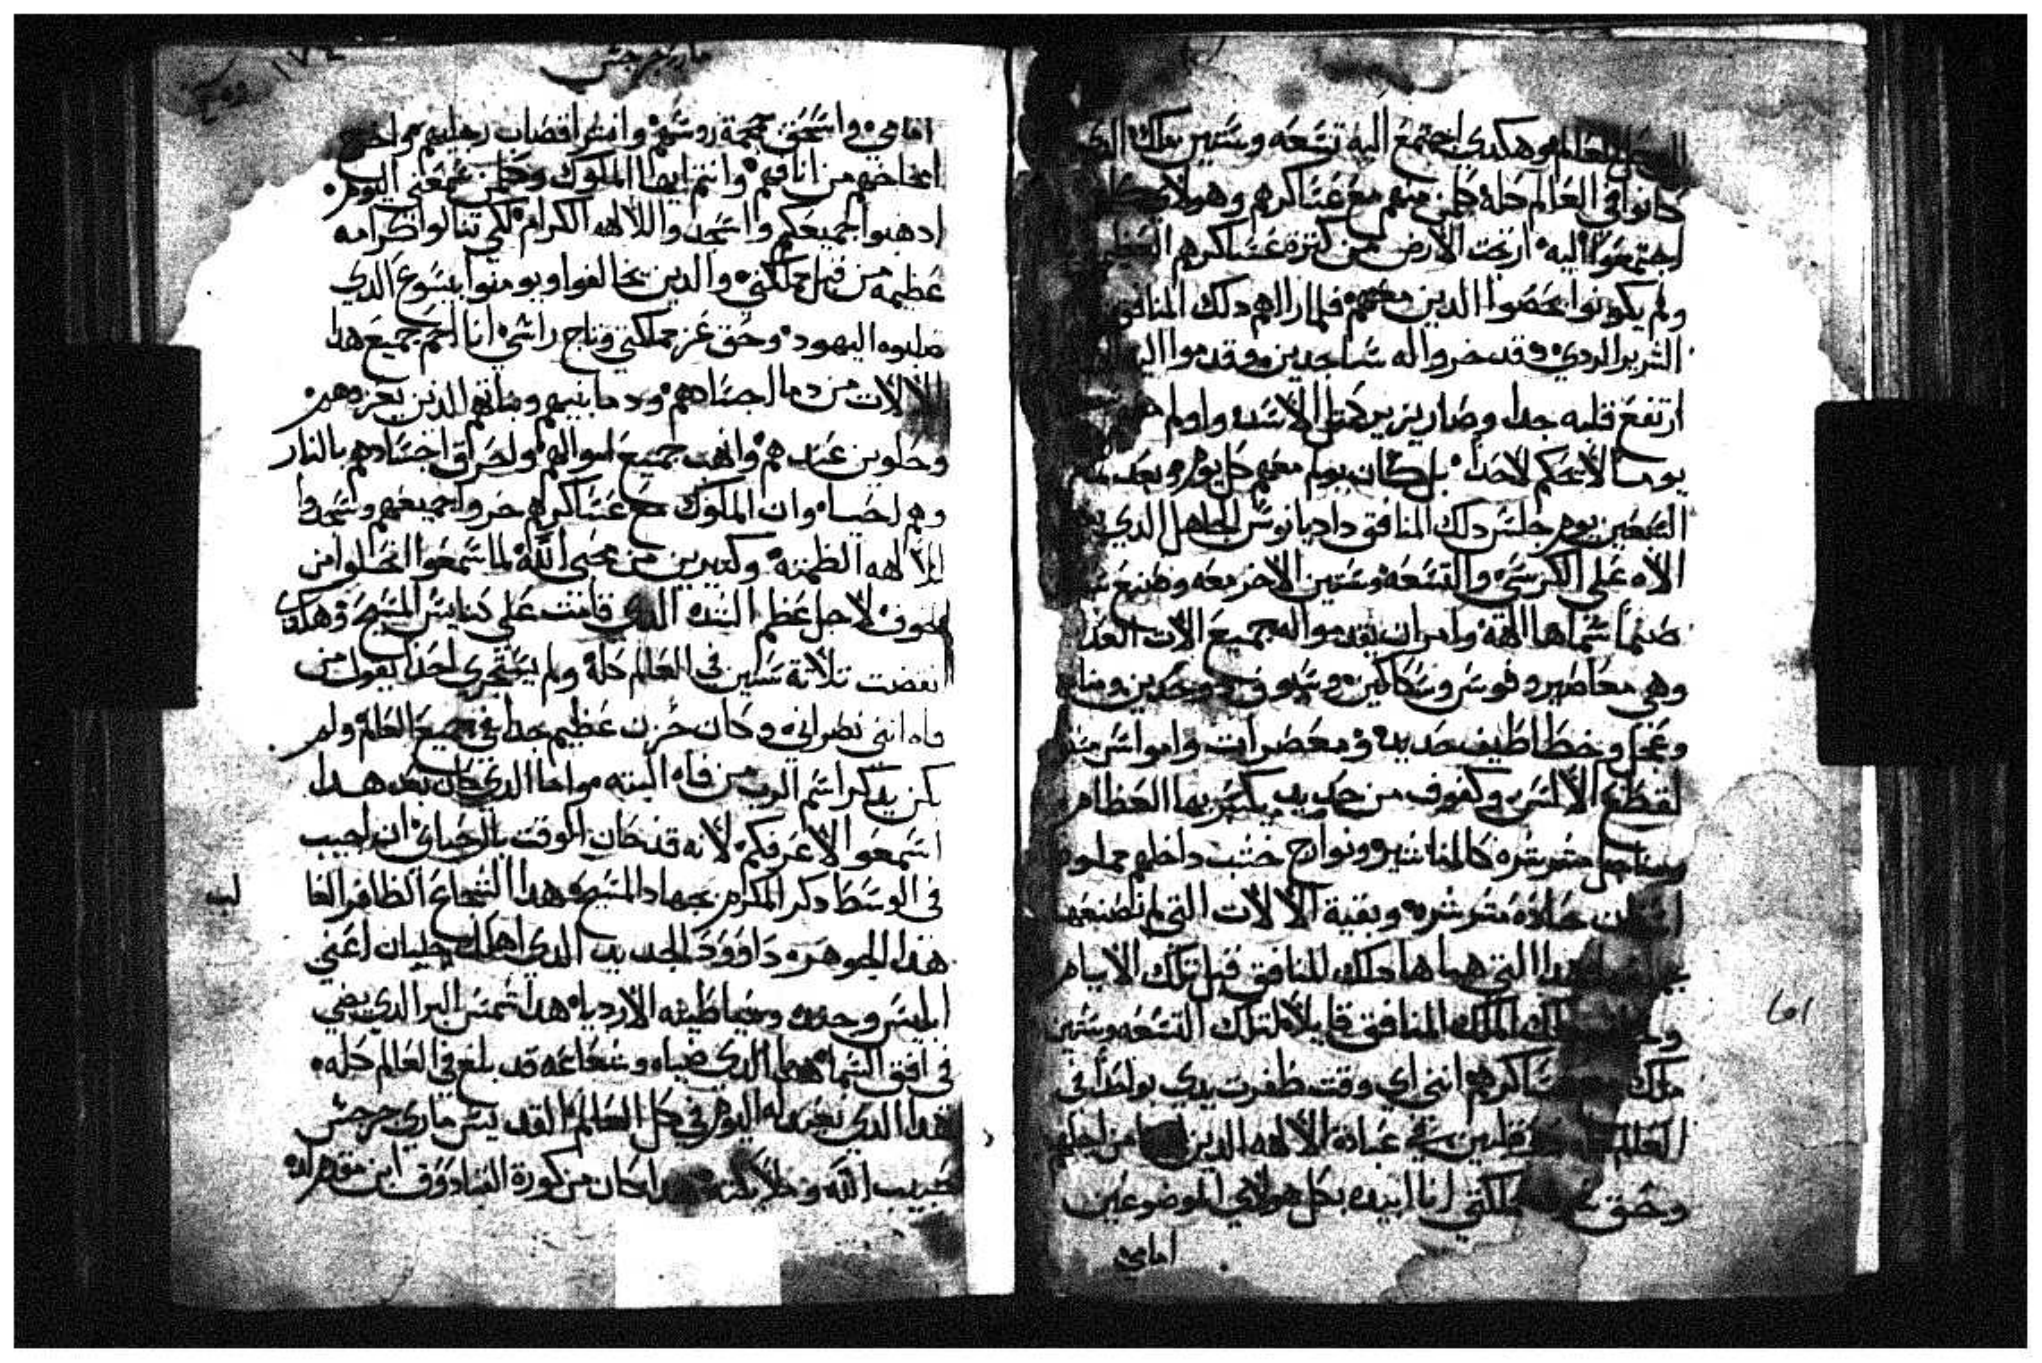 العالم وهكدي اجتمع اليه تسعه وستين ملك الدي
كانوا في العالم كله كلمن منهم مع عساكرهم وهولاء
اجتمعوا اليه ارتجت الارض من كترة عساكرهم
ولم يكونوا يحصوا الدين معهم فلما راهم دلك المنافق
الشرير الردي وقد خروا له ساجدين وقدموا
ارتفع قلبه جدا وصار يزير كمتل الاسد واولم
يوما لا يحكم لاحدا بل كان يولم معهم كل يوم وبعد
السبعين يوم جلس دلك المنافق داديانوس الجاهل الدي
الاه على الكرسي والتسعه وستين الاخر معه وصنع
صنما سماها الهة وامر ان يقدموا له جميع الات العداب
وهي معاصير وفوس وسكاكين وسيوف
وعجل وخطاطيف حديد ومعصرات وامواس
لقطع الالسن وكفوف من حديد يكسر بها العظام
ومناجل مشرشره كالمناشير ونوارج خشب داخلهم مملوه
اسنان حاده مشرشره وبقية الالات التي لم نصنعها
هدا التي هياها دلك المنافق قبل تلك الايام
دلك الملك المنافق قايلا لتلك التسعه وستين
ملك عساكرهم انني اي وقت ظفرت يدي بواحدا في
العالم في عبادة الالهه الدين من اجلهم
وحق مملكتي انا ابيده بكل هولاي الموضوعين
امامي
اما
مار جرجس
١٧٤
امامي واسحق جمجمة روسهم وانشر اقصاب رجليهم واخرج
امخاخهم من انافهم وانتم ايها الملوك وكلمن سمعني اليوم
ادهبوا جميعكم واسجدوا للالهه الكرام لكي تنالوا كرامه
عظيمه من قبل مملكتي والدين يخالفوا ويومنوا بيسوع الدي
صلبوه اليهود وحق عز مملكتي وتاج راسي انا احم جميع هدا
الالات من دما اجسادهم ودما بنيهم وبناتهم الدين
وحلوين عندهم وانهب جميع اموالهم واحرق اجسادهم بالنار
وهم احيا وان الملوك مع عساكرهم خروا جميعهم وسجدوا
للالهه الطمتة وكتيرين من محبي الله لما سمعوا انحلوا من
الخوف لاجل عظم الشده الدي قامت على كنايس المسيح وهكدي
انقضت تلاتة سنين في العالم كله ولم يستجري احدا يقول من
فاه انني نصراني وكان حزن عظيم جدا في جميع العالم ولم
يكن يدكر اسم الرب من فاه البته مواما الدي كان بعد هدا
اسمعوا لاعرفكم لانه قد حان الوقت يا احباي ان اجيب
في الوسط دكر المكرم بجهاد المسيح هدا الشجاع الظافر الغا
هدا الجوهره داوود الجديد الدي اهلك جليات اعني
ابليس وجنده وشياطينه الارديا هدا شمس البر الدي يضي
في افق السما هدا الدي ضياه وشعاعه قد بلغ في العالم كله
هدا الدي نعيد له اليوم في كل العالم القديس ماري جرجس
حبيب الله وملايكته هدا كان من كورة القبادوق ابن